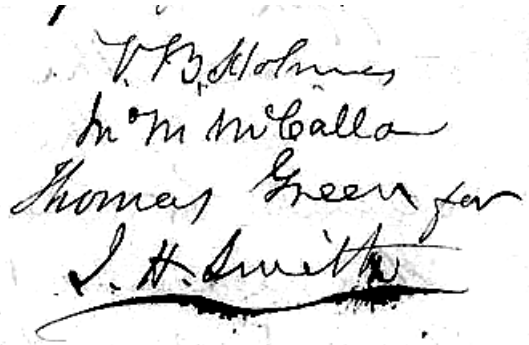 V. B. Holmes
Wm M McCalla
Thomas Green for
J. H. Smith